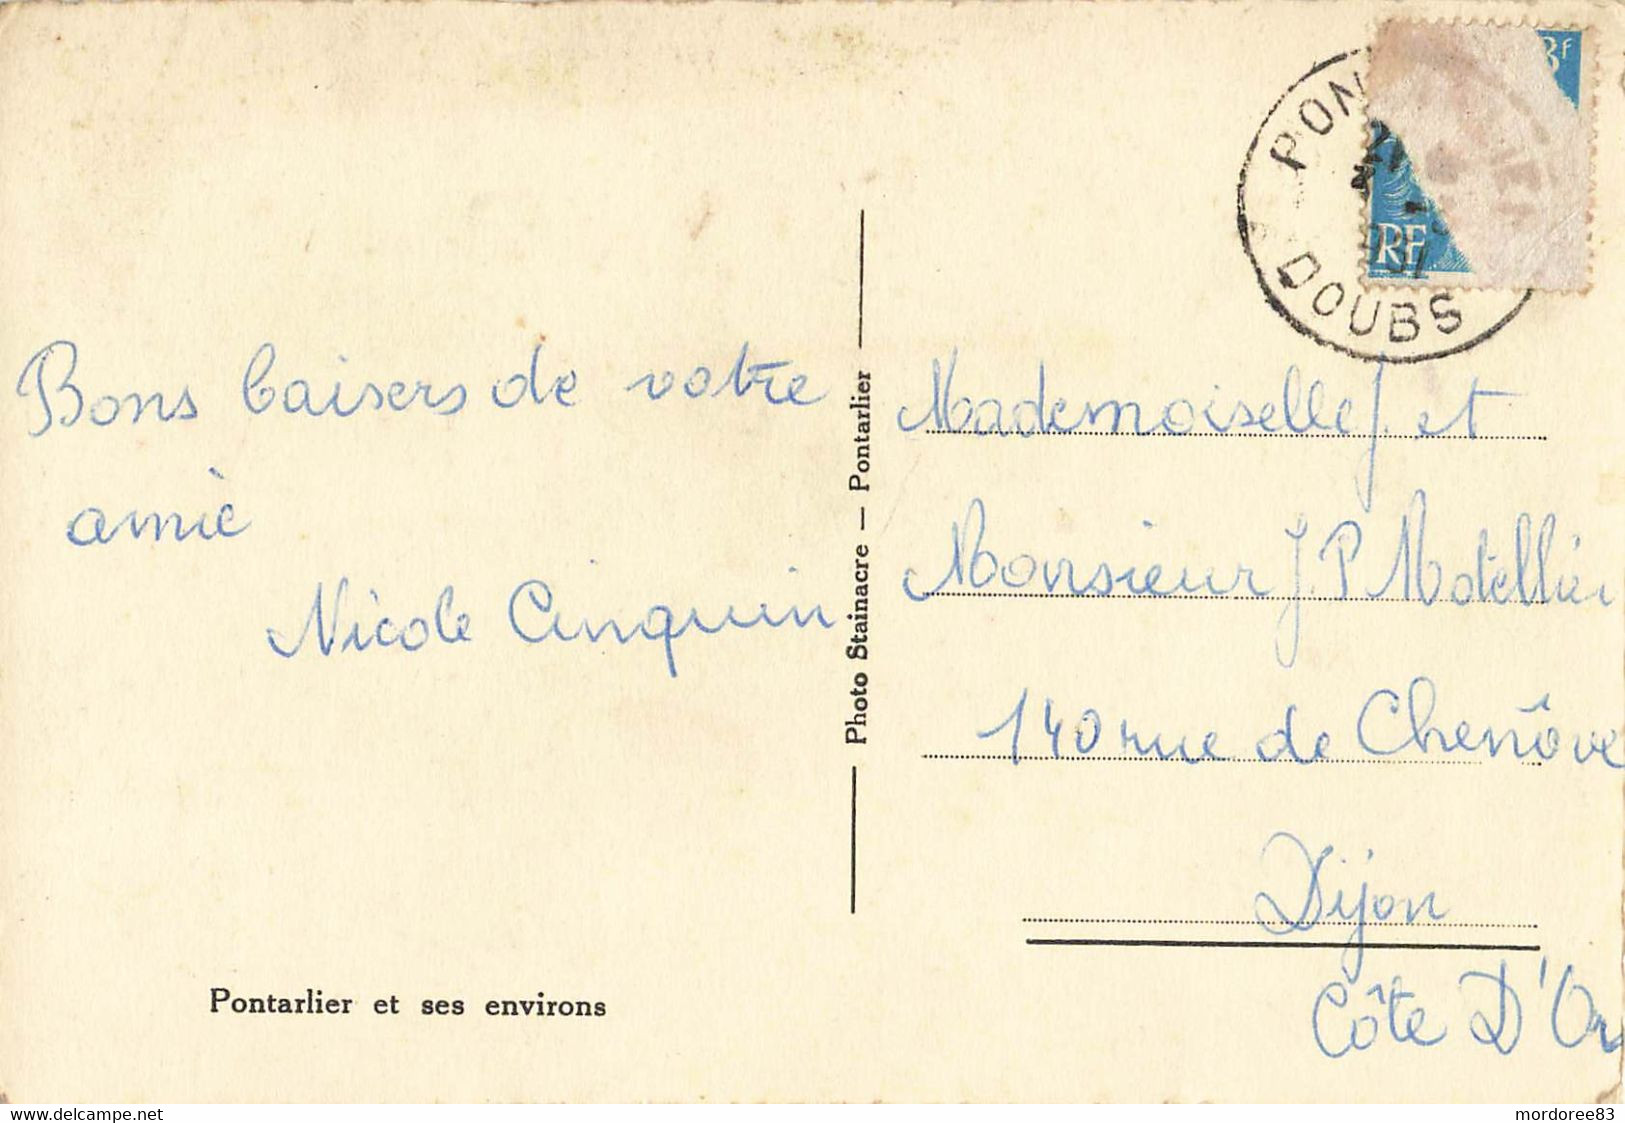 Bons baisers de votre
amie
Nicole Cinquin
Pontarlier et ses environs
Photo Stainacre — Pontarlier
3f
RE
DOUBS
Mademoiselle J. et
Monsieur J.P Motellier
140 rue de Chenôve
Dijon
Côte D'Or
www.delcampe.net
mordoree83